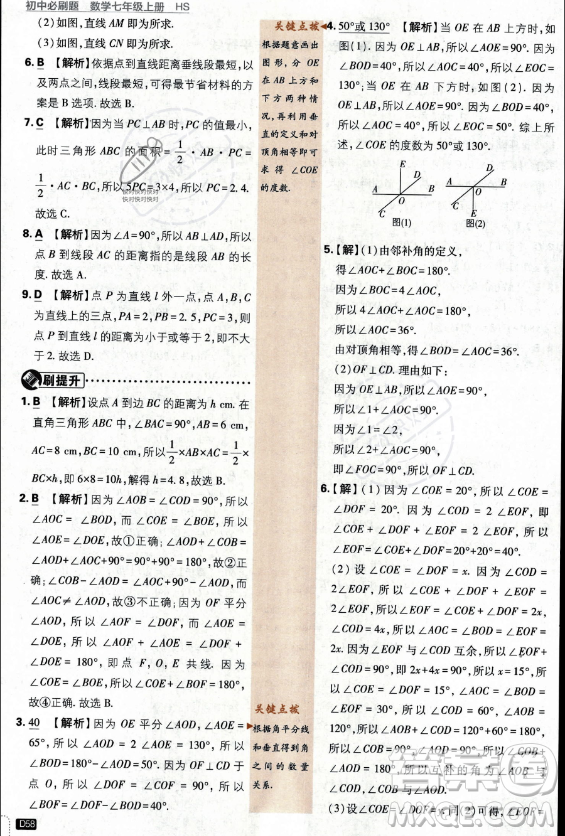 初中必刷题 数学七年级上册 HS
(2)如图,直线AM即为所求.
(3)如图,直线CN即为所求.
6. B 【解析】依据点到直线垂线段最短,以
及两点之间,线段最短,可得最节省材料的方
案是B选项.故选B.
7. C 【解析】因为当PC⊥AB时,PC的值最小,
此时三角形ABC的面积=1/2·AB·PC=
1/2·AC·BC,所以5PC=3×4,所以PC=2.4.
故选C.
8. A 【解析】因为∠A=90°,所以AB⊥AD,所以
点B到线段AC的距离指的是线段AB的长
度.故选A.
9. D 【解析】点P为直线l外一点,点A,B,C
为直线l上的三点,PA=2,PB=2.5,PC=3,则
点P到直线l的距离为小于或等于2,即不大
于2.故选D.
刷提升
1. B 【解析】设点A到边BC的距离为h cm.在
直角三角形ABC中,∠BAC=90°,AB=6 cm,
AC=8 cm,BC=10 cm,所以1/2×AB×AC=1/2×
BC×h,即6×8=10h,解得h=4.8,故选B.
2. B 【解析】因为∠AOB=∠COD=90°,所以
∠AOC=∠BOD,而∠COE=∠BOE,所以
∠AOE=∠DOE,故①正确;∠AOD+∠COB=
∠AOD+∠AOC+90°=90°+90°=180°,故②正
确;∠COB+∠AOC=∠AOB=90°,而
∠AOC≠∠AOD,故③不正确;因为OF平分
∠AOD,所以∠AOF=∠DOF,而∠AOE=
∠DOE,所以∠AOF+∠AOE=∠DOF+
∠DOE=180°,即点F,O,E共线.因为
∠COE=∠BOE,所以∠COF+∠BOF=180°,
故④正确.故选B.
3. 40 【解析】因为OE平分∠AOD,∠AOE=
65°,所以∠AOD=2∠AOE=130°,所以
∠BOD=180°-∠AOD=50°.因为OF⊥CD于
点O,所以∠DOF=90°,所以∠BOF=
∠DOF-∠BOD=90°-50°=40°.
D58
关键点拨
根据题意画出
图形,分OE
在AB上方和
下方两种情
况,再利用垂
直的定义和对
顶角相等即可
求得∠COE
的度数.
关键点拨
根据角平分线
和垂直得到角
之间的数量
关系.
4. 50°或130° 【解析】当OE在AB上方时,如
图(1).因为OE⊥AB,所以∠AOE=90°.因为
∠BOD=40°,所以∠AOC=40°,所以∠EOC=
130°;当OE在AB下方时,如图(2).因为
OE⊥AB,所以∠AOE=90°.因为∠BOD=40°,
所以∠AOC=40°,所以∠EOC=50°.综上所
述,∠COE的度数为50°或130°.
E
D
A O B
C
图(1)
D
A O B
C E
图(2)
5. 【解】(1)由邻补角的定义,
得∠AOC+∠BOC=180°.
因为∠BOC=4∠AOC,
所以4∠AOC+∠AOC=180°,
所以∠AOC=36°.
由对顶角相等,得∠BOD=∠AOC=36°.
(2)OF⊥CD.理由如下:
因为OE⊥AB,所以∠AOE=90°,
所以∠1+∠AOC=90°.
因为∠1=∠2,
所以∠2+∠AOC=90°,
即∠FOC=90°,所以OF⊥CD.
6. 【解】(1)因为∠COE=20°,所以∠COE=
∠DOF=20°.因为∠COD=2∠EOF,即
∠DOF+∠EOF=2∠EOF,所以∠DOF=
∠EOF=20°,所以∠COD=20°+20°=40°.
(2)设∠COE=∠DOF=x.因为∠COD=
2∠EOF,所以∠COE+∠DOF+∠EOF=
2∠EOF,所以∠EOF=∠COE+∠DOF=2x,
∠COD=4x,所以∠BOC=∠COD=4x=
2∠EOF.因为∠EOF与∠COD互余,所以∠EOF+
∠COD=90°,即2x+4x=90°,所以x=15°,所
以∠COB=60°.因为∠AOB=4∠EOF=
120°,所以∠AOB+∠COB=120°+60°=180°,
所以∠COB与∠AOB互补.因为∠COB+
∠COE=60°+15°=75°≠90°,所以∠COB与
∠COE不互余.
(3)设∠COE=∠DOF=x,同(2)可得,∠EOF=